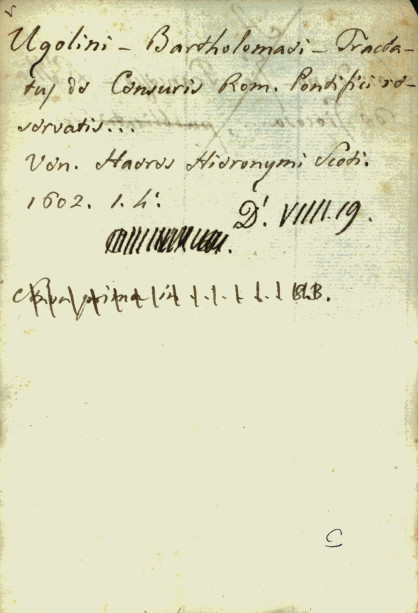 Ugolini - Bartholomaei - Tracta-
tus de Censuris Rom. Pontifici re-
servatis...
Ven. Haeres Hieronymi Scoti.
1602. 1. 4.
D! VIIII. 19.
C